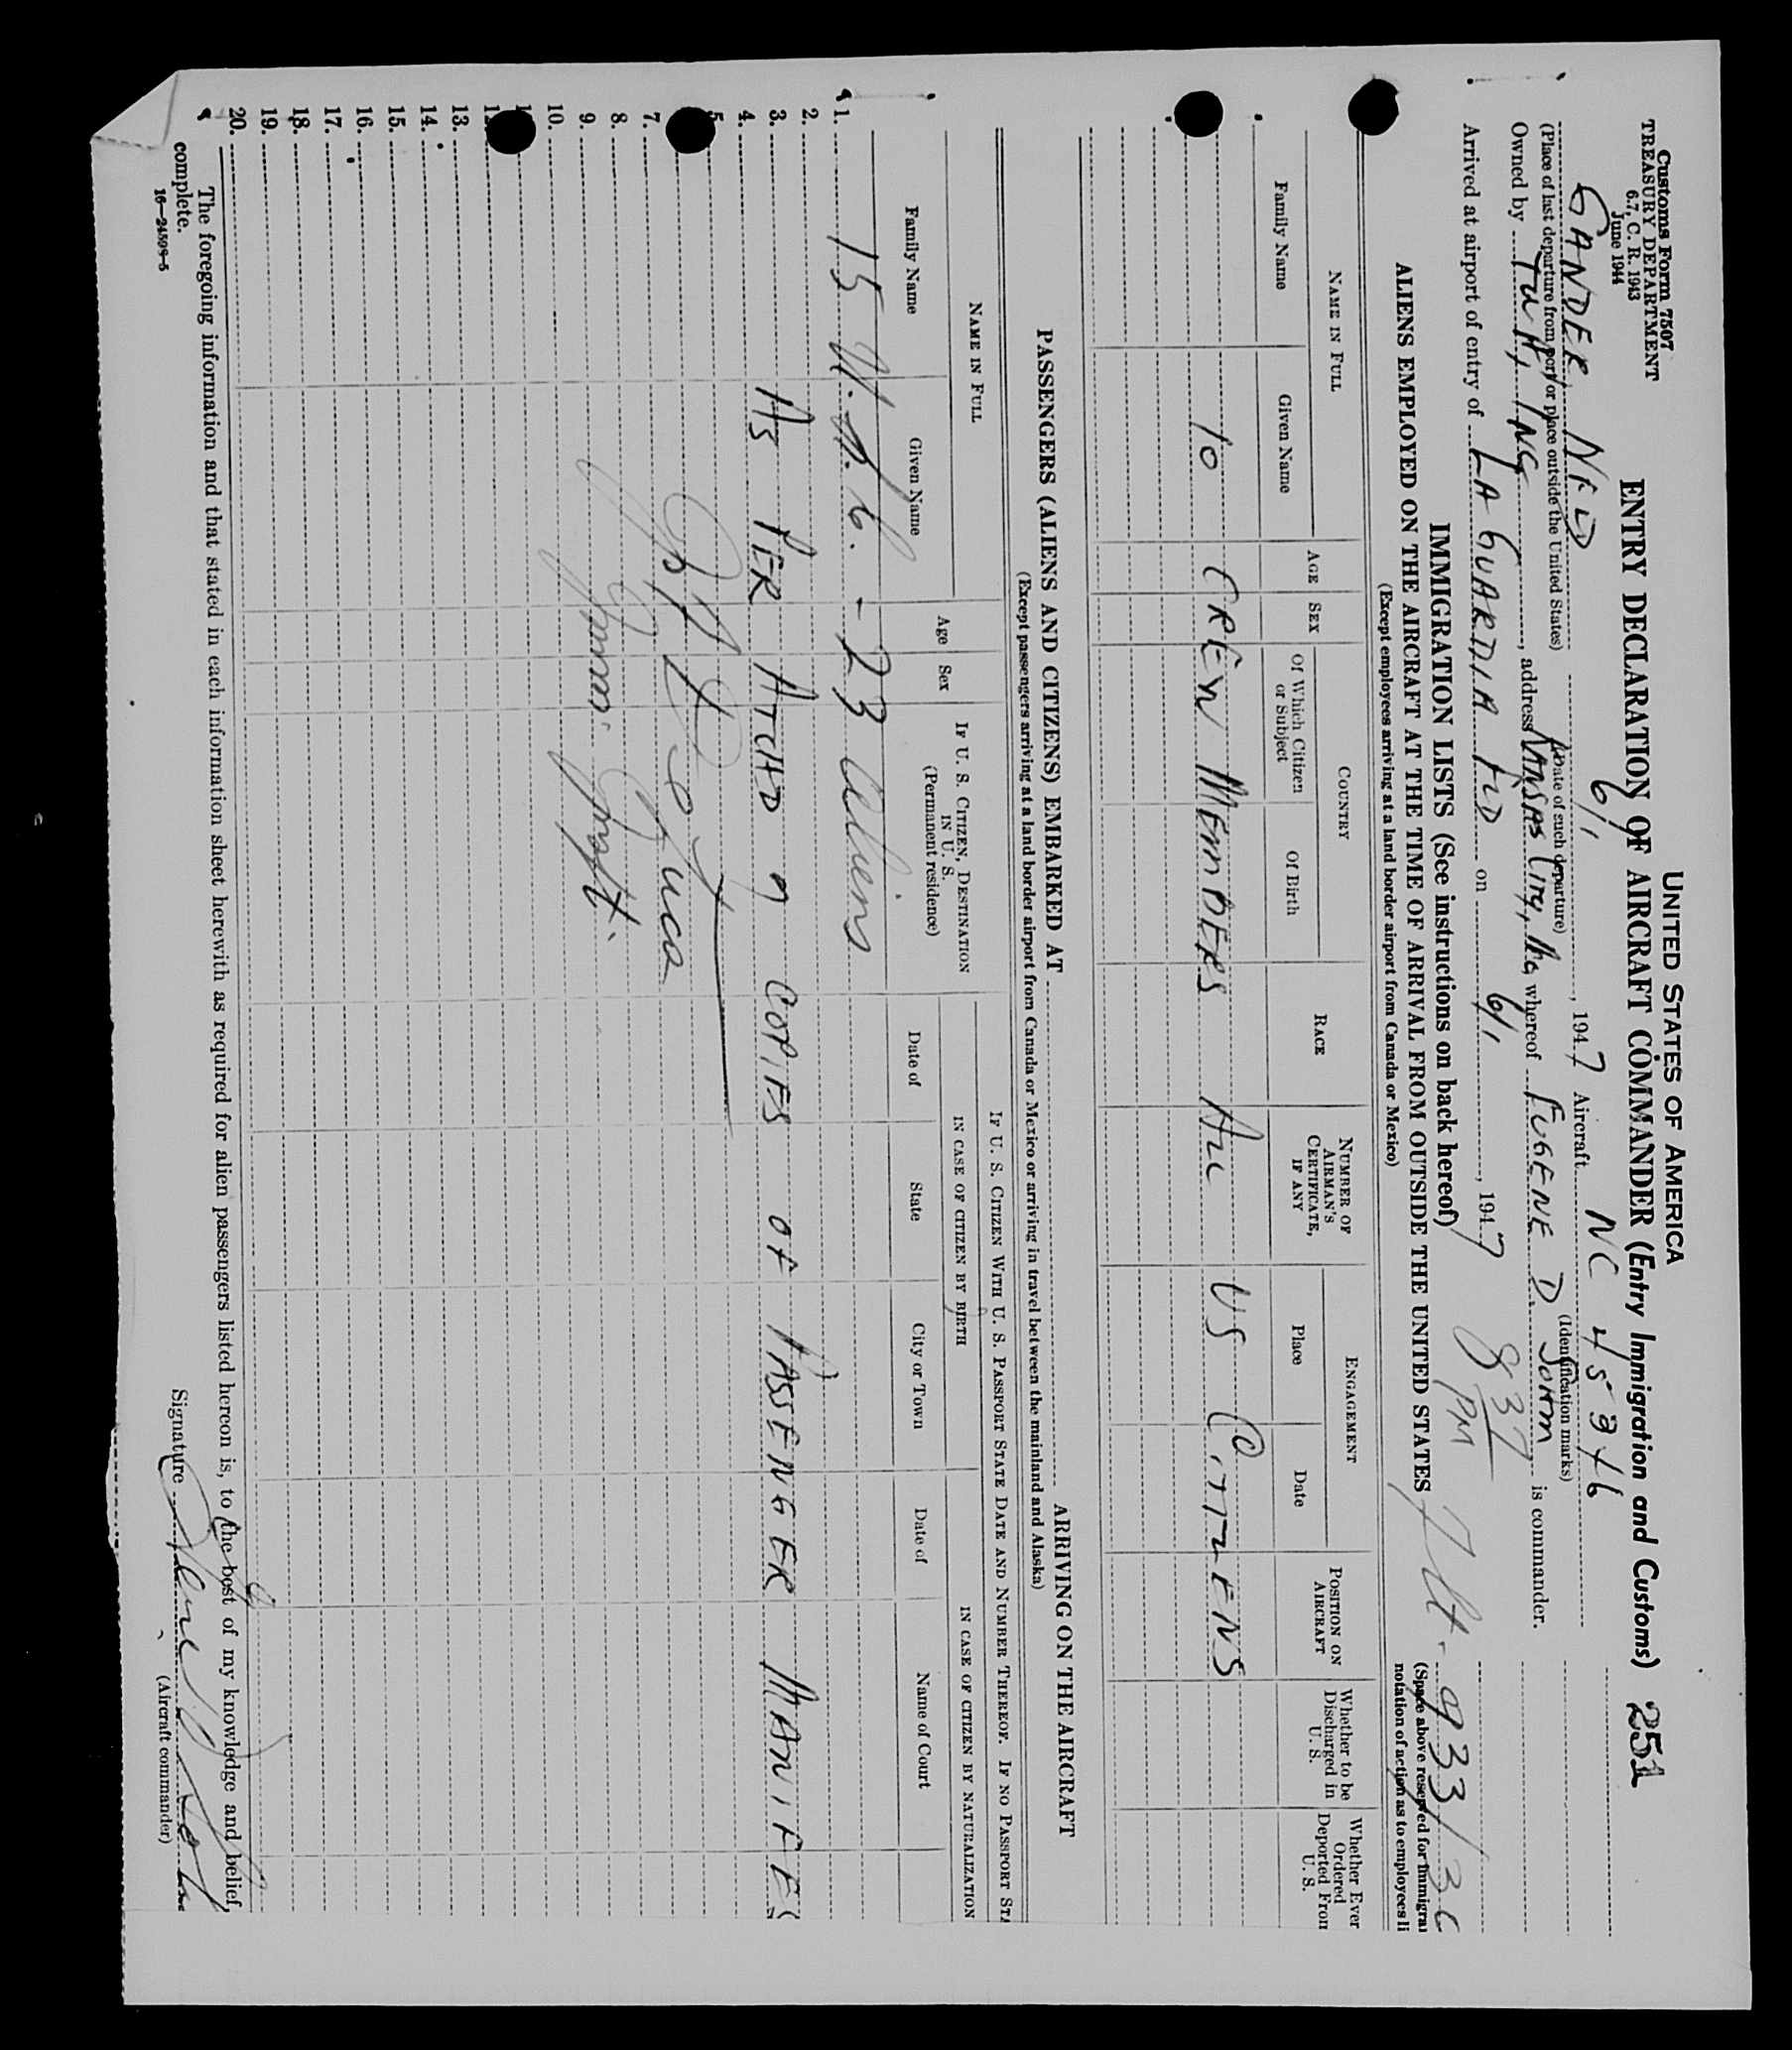 Customs Form 7507
TREASURY DEPARTMENT
6.7, C. R. 1943
June 1944
UNITED STATES OF AMERICA
ENTRY DECLARATION OF AIRCRAFT COMMANDER (Entry Immigration and Customs) 251
GANDER NFD 6/1, 1947 Aircraft NC 45346
(Place of last departure from port or place outside the United States) (Date of such departure) (Identification marks)
Owned by TWA, INC, address KANSAS CITY, Mo, whereof EUGENE D. is commander.
Arrived at airport of entry of LA GUARDIA FLD on 6/1, 1947 837 PM
IMMIGRATION LISTS (See instructions on back hereof)
Flt. 933/
ALIENS EMPLOYED ON THE AIRCRAFT AT THE TIME OF ARRIVAL FROM OUTSIDE THE UNITED STATES
(Except employees arriving at a land border airport from Canada or Mexico)
(Space above reserved for immigrat
notation of action as to employees li
NAME IN FULL
Family Name
Given Name
AGE
SEX
COUNTRY
Of Which Citizen or Subject
Of Birth
RACE
NUMBER OF AIRMAN'S CERTIFICATE, IF ANY
ENGAGEMENT
Place
Date
POSITION ON AIRCRAFT
Whether to be Discharged in U. S.
Whether Ever Ordered Deported From U. S.
10 CREW MEMBERS ALL US CITIZENS
PASSENGERS (ALIENS AND CITIZENS) EMBARKED AT ARRIVING ON THE AIRCRAFT
(Except passengers arriving at a land border airport from Canada or Mexico or arriving in travel between the mainland and Alaska)
NAME IN FULL
Family Name
Given Name
Age
Sex
IF U. S. CITIZEN, DESTINATION IN U. S.
(Permanent residence)
IF U. S. CITIZEN WITH U. S. PASSPORT STATE DATE AND NUMBER THEREOF. IF NO PASSPORT STA
IN CASE OF CITIZEN BY BIRTH
Date of
State
City or Town
IN CASE OF CITIZEN BY NATURALIZATION
Date of
Name of Court
1. 15 - 23 Aliens
2.
3. AS PER ATCHD 7 COPIES OF PASSENGER MANIFES
4.
5.
7.
8.
9. Imm. Inspt.
10.
13.
14.
15.
16.
17.
18.
19.
20.
The foregoing information and that stated in each information sheet herewith as required for alien passengers listed hereon is, to the best of my knowledge and belief,
complete.
16—24598-5
Signature
(Aircraft commander)